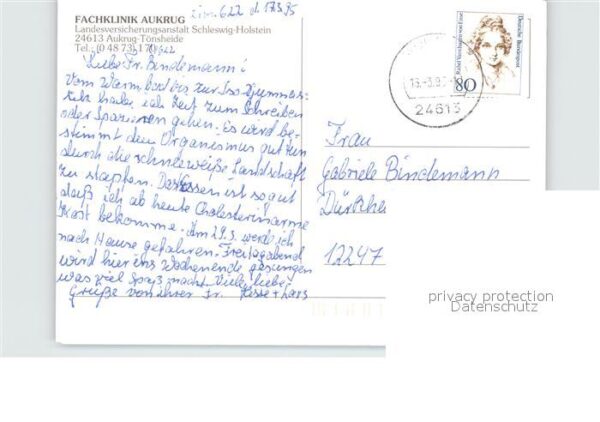 Zim. 622 d. 17.3.95
FACHKLINIK AUKRUG
Landesversicherungsanstalt Schleswig-Holstein
24613 Aukrug-Tönsheide
Tel.: (0 48 73)
622
Liebe Fr. Bindemann!
Vom Warmbad bis zur Iso Gymnas-
tik habe ich Zeit zum Schreiben
oder Spazieren gehen. Es wird be-
stimmt dem Organismus gut tun
durch die schneeweiße Landschaft
zu stapfen. Das Essen ist so gut
daß ich ab heute Cholesterinarme
Kost bekomme. Am 29.3. werde ich
nach Hause gefahren. Freitagabend
wird hier ins Wochenende gesungen
was viel Spaß macht. Viele liebe
Grüße von Ihrer Fr. + Lars
Rahel Varnhagen von Ense
Deutsche Bundespost
80
24613
Frau
Gabriele Bindemann
12247
privacy protection
Datenschutz